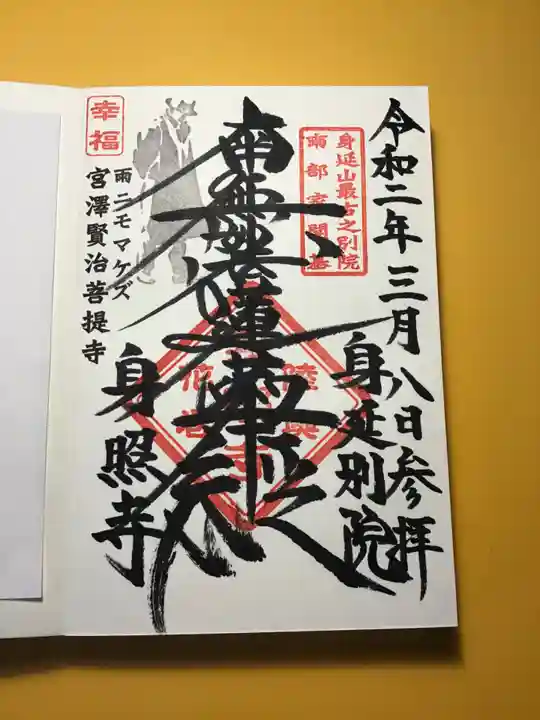 令和二年三月八日参拝
身延山最古之別院
南部家開基
身延別院
南無妙法蓮華経
陸奥
花巻
幸福
雨ニモマケズ
宮澤賢治菩提寺
身照寺